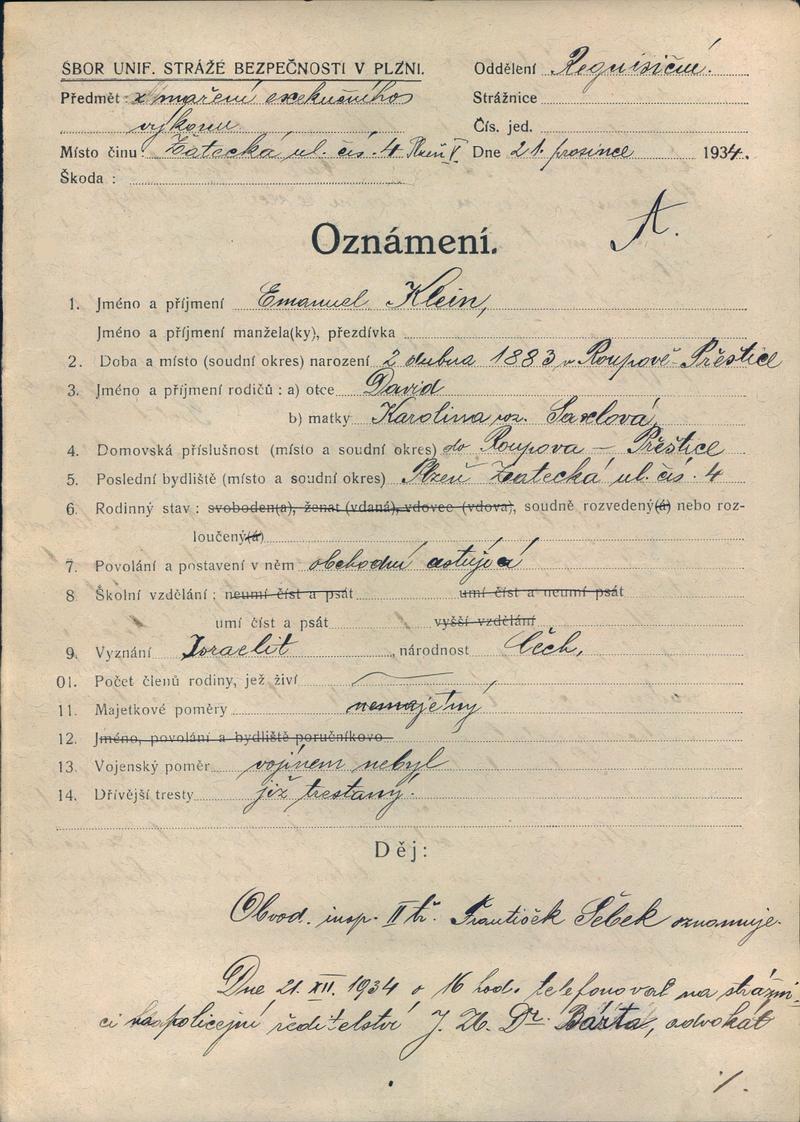 SBOR UNIF. STRÁŽE BEZPEČNOSTI V PLZNI.
Oddělení Requisiční.
Předmět: z maření exekučního
Strážnice
výkonu
Čís. jed.
Místo činu: Žatecká ul. čís. 4 Plzeň V
Dne 21. prosince 1934.
Škoda:
A.
Oznámení.
1. Jméno a příjmení Emanuel Klein,
Jméno a příjmení manžela(ky), přezdívka
2. Doba a místo (soudní okres) narození 2 dubna 1883 v Roupově-Přeštice
3. Jméno a příjmení rodičů: a) otce David
b) matky Karolina roz. Saxlová
4. Domovská příslušnost (místo a soudní okres) do Roupova - Přeštice
5. Poslední bydliště (místo a soudní okres) Plzeň Žatecká ul. čís. 4
6. Rodinný stav: svoboden(a), ženat (vdaná), vdovec (vdova), soudně rozvedený(á) nebo roz-
loučený(á)
7. Povolání a postavení v něm obchodní
8 Školní vzdělání: neumí číst a psát umí číst a neumí psát
umí číst a psát vyšší vzdělání
9. Vyznání Israelit, národnost Čech,
01. Počet členů rodiny, jež živí
11. Majetkové poměry nemajetný
12. Jméno, povolání a bydliště poručníkovo
13. Vojenský poměr vojínem nebyl
14. Dřívější tresty již trestaný.
Děj:
Obvod. insp. II tř. František Šebek oznamuje.
Dne 21. XII. 1934 o 16 hod. telefonoval na strážni-
ci policejní ředitelství J. U. Dr. Bárta, advokát
./.